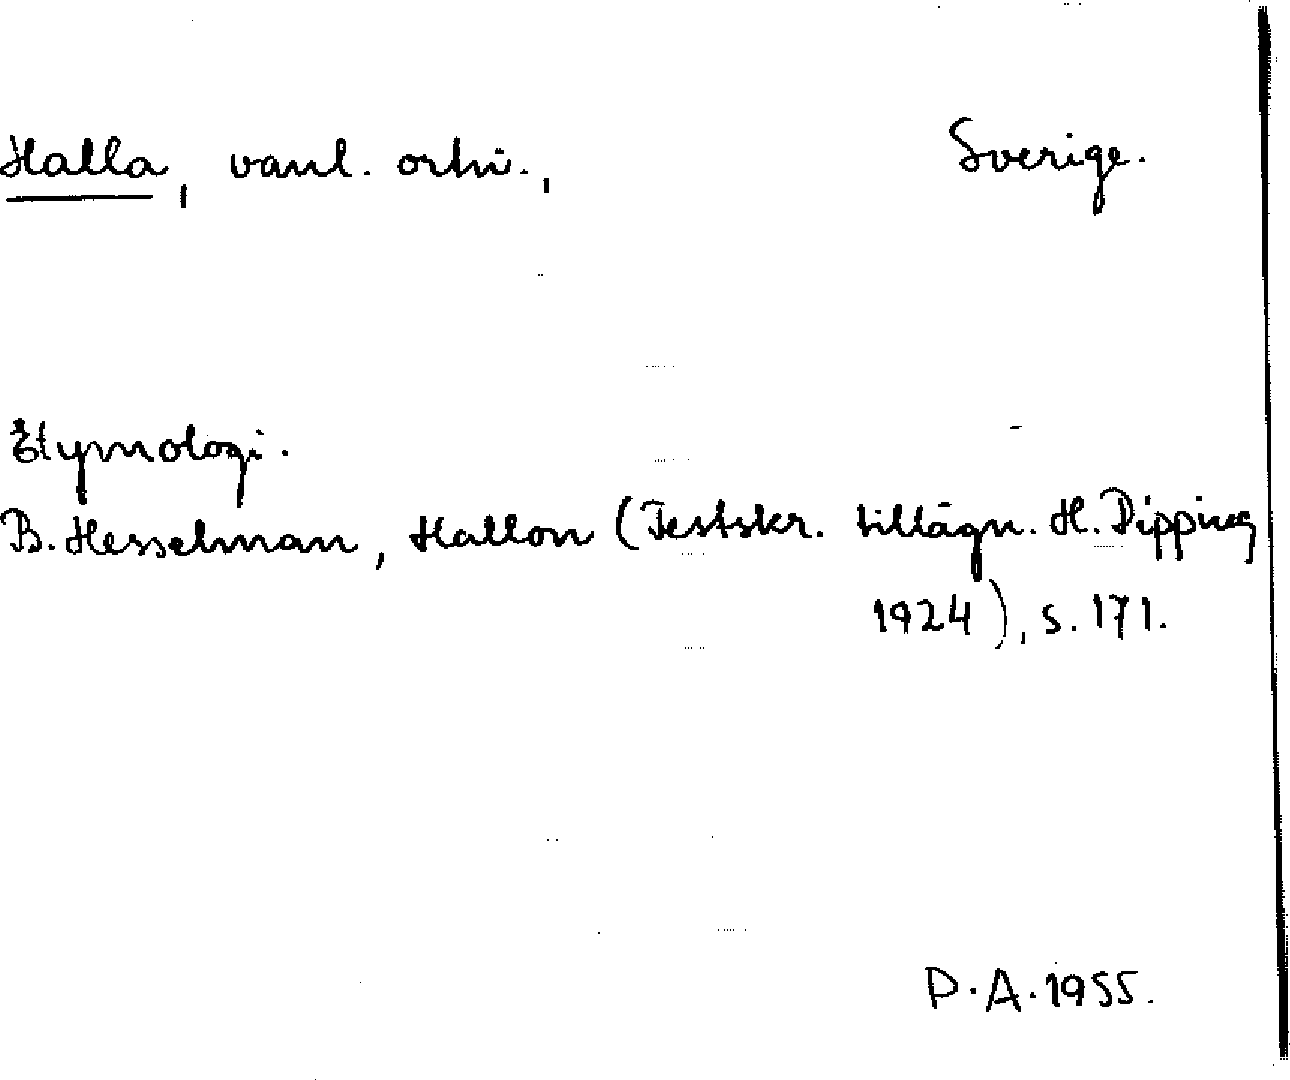 Halla, vanl. ortn., Sverige.
Etymologi.
B. Hesselman, Hallon (Festskr. tillägn. H. Pipping
1924), s. 171.
P. A. 1955.